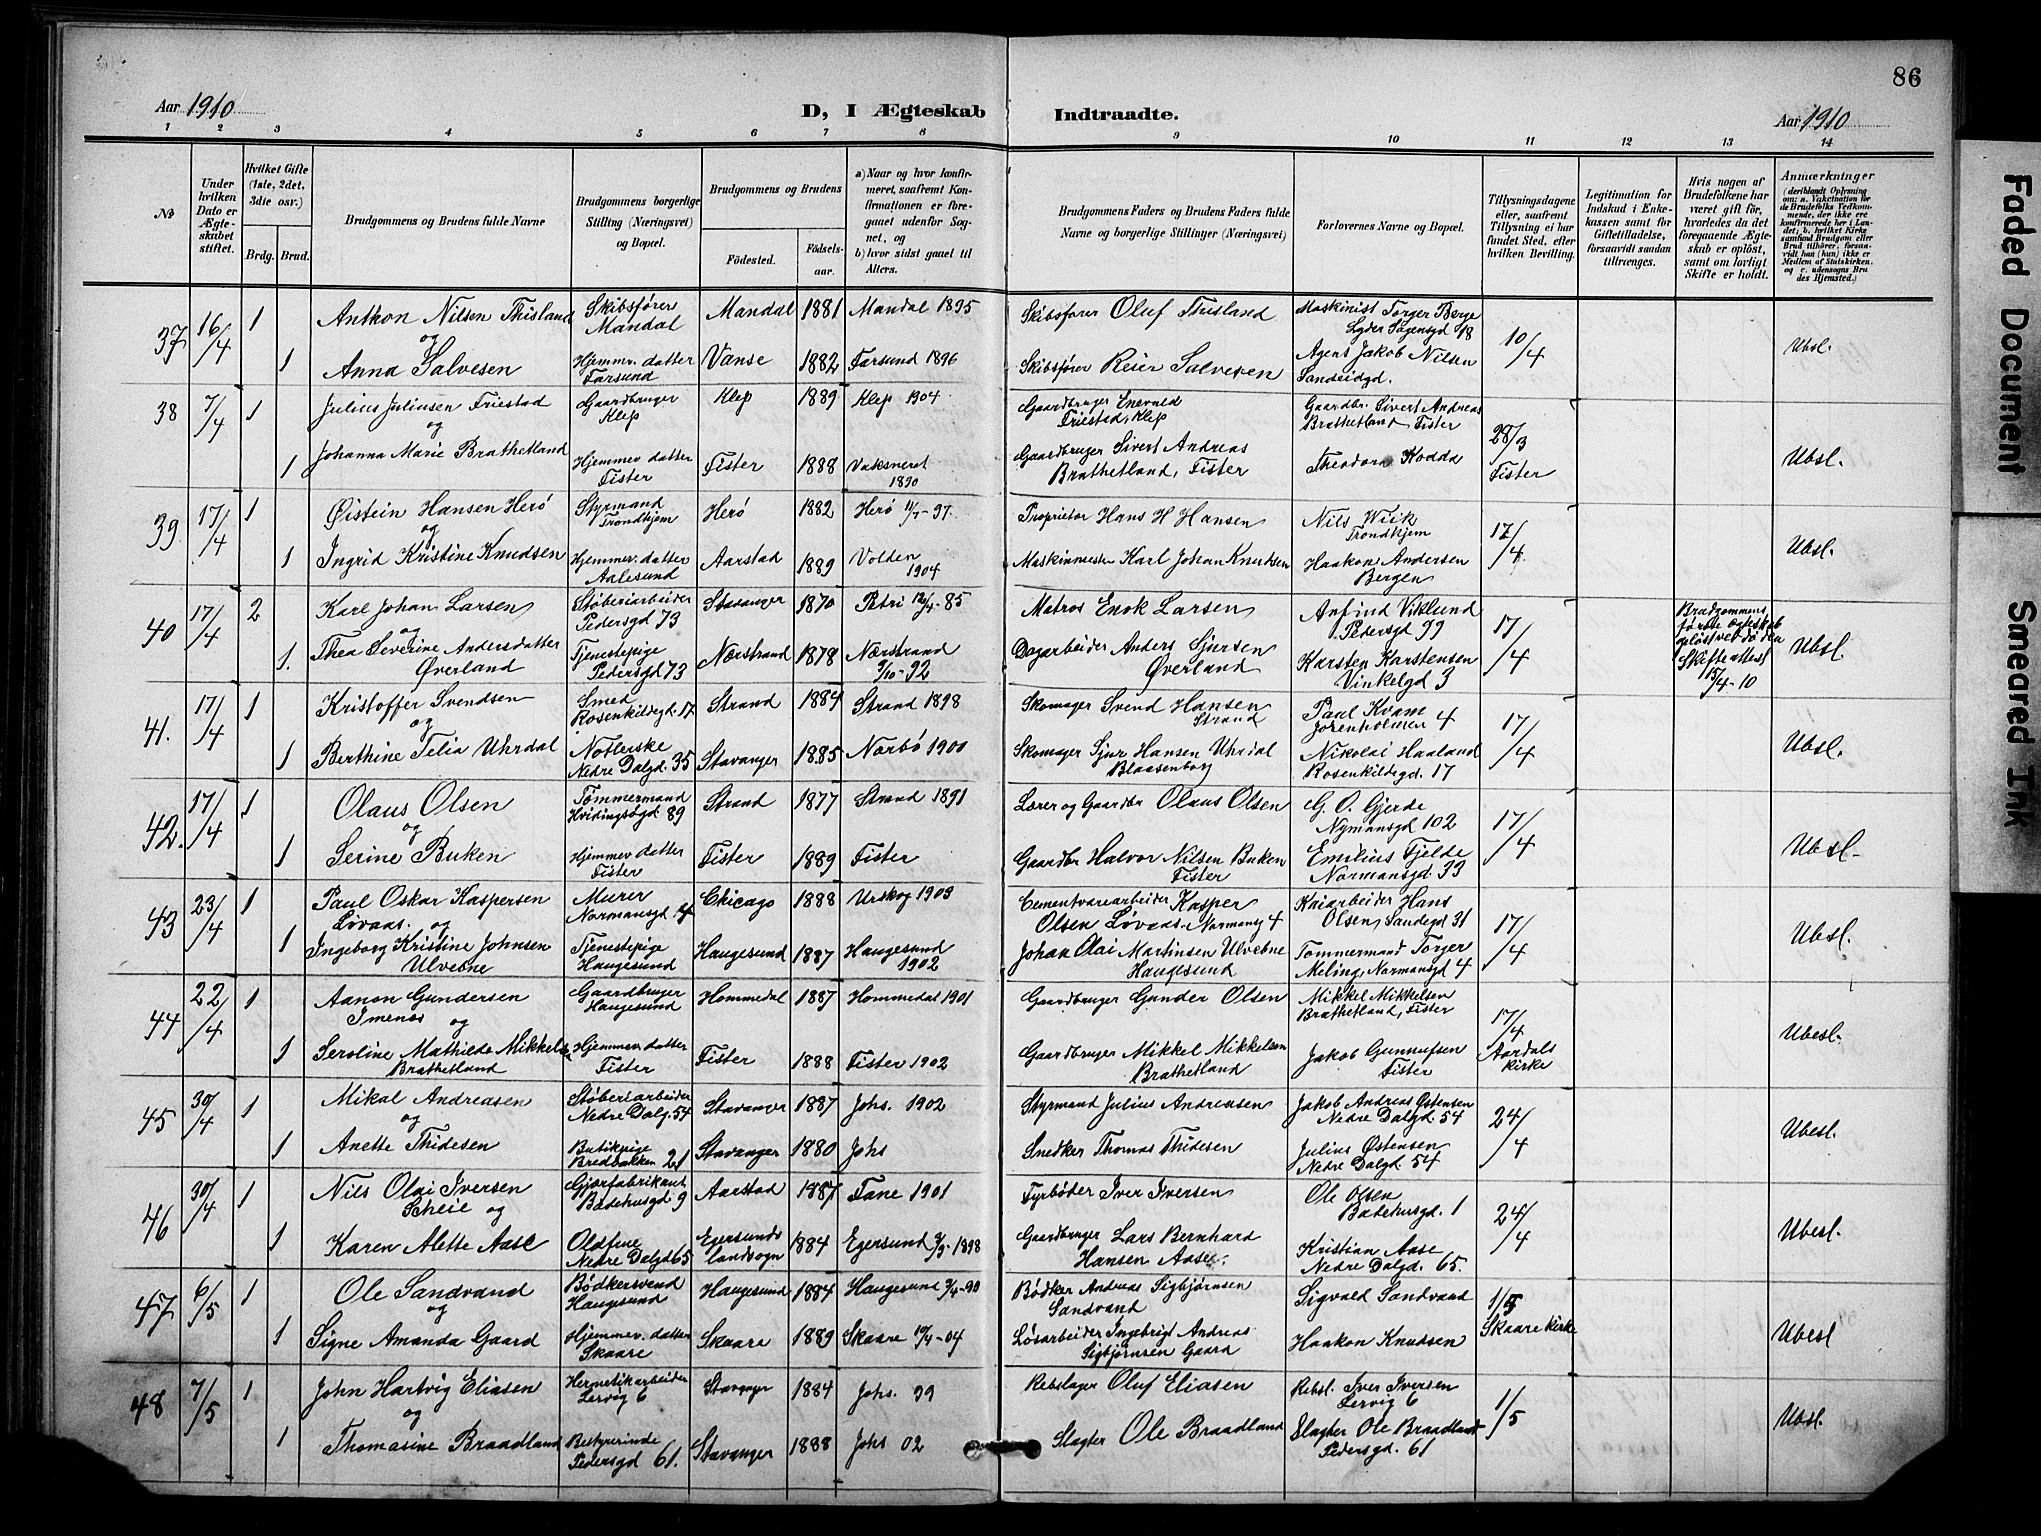 86
Aar 1910
D, I Ægteskab Indtraadte.
Aar 1910
1 2 3 4 5 6 7 8 9 10 11 12 13 14
№
Under hvilken Dato er Ægteskabet stiftet.
Hvilket Gifte (1ste, 2det, 3die osv.)
Brdg. Brud.
Brudgommens og Brudens fulde Navne
Brudgommens borgerlige Stilling (Næringsvei) og Bopæl.
Brudgommens og Brudens
Fødested.
Fødselsaar.
a) Naar og hvor konfirmeret, saafremt Konfirmationen er foregaaet udenfor Sognet, og
b) hvor sidst gaaet til Alters.
Brudgommens Faders og Brudens Faders fulde Navne og borgerlige Stillinger (Næringsvei)
Forlovernes Navne og Bopæl.
Tillysningsdagene eller, saafremt Tillysning ei har fundet Sted, efter hvilken Bevilling.
Legitimation for Indskud i Enkekassen samt for Giftetilladelse, forsaavidt saadan tiltrænges.
Hvis nogen af Brudefolkene har været gift før, hvorledes da det foregaaende Ægteskab er opløst, samt om lovligt Skifte er holdt.
Anmærkninger
(deriblandt Oplysning om: a. Vakcination for de Brudefolks Vedkommende, der ikke ere konfirmerede her i Landet; b. hvilket Kirkesamfund Brudgom eller Brud tilhører, forsaavidt han (hun) ikke er Medlem af Statskirken, og c. udensogns Brudes Hjemsted.)
37 16/4 1 Anthon Nilsen Thisland Skibsfører Mandal Mandal 1881 Mandal 1895 Skibsfører Oluf Thisland Maskinist Torger Berge Lyder Sagensgd 18 10/4
og
1 Anna Salvesen Hjemmv. datter Farsund Vanse 1882 Farsund 1896 Skibsfører Reier Salvesen Agent Jakob Nilsen Sandeidgd. Ubsl.
38 7/4 1 Julius Juliusen Friestad Gaardbruger Klep Klep 1889 Klep 1904 Gaardbruger Enevald Friestad, Klep Gaardbr. Sivert Andreas Brathetland, Fister 28/3 Fister
og
1 Johanna Marie Brathetland Hjemmev datter Fister Fister 1888 Vaksneret 1890 Gaardbruger Sivert Andreas Brathetland, Fister Theodora Hodda Ubsl.
39 17/4 1 Øistein Hansen Herø Styrmand Trondhjem Herø 1882 Herø 11/7-97. Proprietor Hans H Hansen Nils Wiik Trondhjem 17/4
og
1 Ingrid Kristine Knudsen Hjemmev. datter Aalesund Aarstad 1889 Volden 1904 Maskinmester Karl Johan Knudsen Haakon Andersen Bergen Ubsl.
40 17/4 2 Karl Johan Larsen Støberiarbeider Pedersgd 73 Stavanger 1870 Petri 12/4-85 Matros Enok Larsen Arfind Viklund Pedersgd 99 17/4 Brudgommens første ægteskab opløst ved døden Skifteattest 15/4-10
og
1. Thea Severine Andersdatter Øverland Tjenestepige Pedersgd 73 Nærstrand 1878 Nærstrand 9/10-92 Dagarbeider Anders Sjursen Øverland Karsten Karstensen Vinkelgd 3 Ubsl.
41. 17/4 1 Kristoffer Svendsen Smed Rosenkildegd. 17 Strand 1884 Strand 1898 Skomager Svend Hansen Strand Paul Kvam Jorenholmen 4 17/4
og
1 Berthine Telia Uhrdal Notterske Nedre Dalgd. 35 Stavanger 1885 Norbø 1900 Skomager Sjur Hansen Uhrdal Blaasenborg Nikolai Haaland Rosenkildegd. 17 Ubsl.
42. 17/4 1 Olaus Olsen Tømmermand Hvidingsøgd 89 Strand 1877 Strand 1891 Lærer og Gaardbr Olaus Olsen G. O. Gjerde Nymansgd 102 17/4
og
1 Serine Buken Hjemmev datter Fister Fister 1889 Fister Gaardbr Halvor Nilsen Buken Fister Emilius Fjelde Normansgd. 33 Ubsl.
43 23/4 1 Paul Oskar Kaspersen Løvaas. Murer Normansgd 4 Chicago 1888 Urskog 1903 Cementvarearbeider Kasper Olsen Løvaas. Normansg 4 Kaiarbeider Hans Olsen, Sandegd 31 17/4
og
1 Ingeborg Kristine Johnsen Ulvebne Tjenestepige Haugesund Haugesund 1887 Haugesund 1902 Johan Olai Martinsen Ulvebne Haugesund Tømmermand Torger Meling, Normansgd 4 Ubsl.
44 22/4 1 Aanon Gundersen Imenes Gaardbruger Haugesund Hommedal 1887 Hommedal 1901 Gaardbruger Gunder Olsen Mikkel Mikkelsen Brathetland, Fister 17/4 Aardals kirke
og
1 Seroline Mathilde Mikkelsd. Brathetland Hjemmev. datter Fister Fister 1888 Fister 1902 Gaardbruger Mikkel Mikkelsen Brathetland Jakob Gunnufsen Fister Ubesl.
45 30/4 1 Mikal Andreasen Støberiarbeider Nedre Dalg. 54 Stavanger 1887 Johs. 1902 Styrmand Julius Andreasen Jakob Andreas Østensen Nedre Dalgd. 54 24/4
og
1 Anette Thidesen Butikpige Bredbakken 21 Stavanger 1880 Johs Snedker Thomas Thidesen Julius Østensen Nedre Dalgd. 54 Ubesl.
46 30/4 1 Nils Olai Iversen Scheie Gjærfabrikant Badehusgd 9 Aarstad 1887 Fane 1901 Fyrbøder Iver Iversen Ole Olsen Badehusgd. 1 24/4
og
1 Karen Alette Aase Oldfrue Nedre Dalgd 65 Egersunds landsogn 1884 Egersund 1898 Gaardbruger Lars Bernhard Hansen Aase. Kristian Aase Nedre Dalgd. 65. Ubesl.
47 6/5 1 Ole Sandvand Bødkersvend Haugesund Haugesund 1884 Haugesund Bødker Andreas Sigbjørnsen Sandvand Sigvald Sandvand 1/5 Skaare kirke
og
1 Signe Amanda Gaard Hjemmev. datter Skaare Skaare 1889 Skaare 10/4-04 Løsarbeider Ingebrigt Andreas Sigbjørnsen Gaard Haakon Knudsen Ubesl
48 7/5 1 John Hartvig Eliasen Hermetikarbeider Lervig 6 Stavanger 1884 Johs. 99 Rebslager Oluf Eliasen Rebsl. Iver Iversen Lervig 6 1/5
og
1 Thomasine Braadland Bestyrerinde Pedersgd 61. Stavanger 1888 Johs 02 Slagter Ole Braadland Slagter Ole Braadland Pedersgd. 61 Ubsl.
Faded Document
Smeared Ink